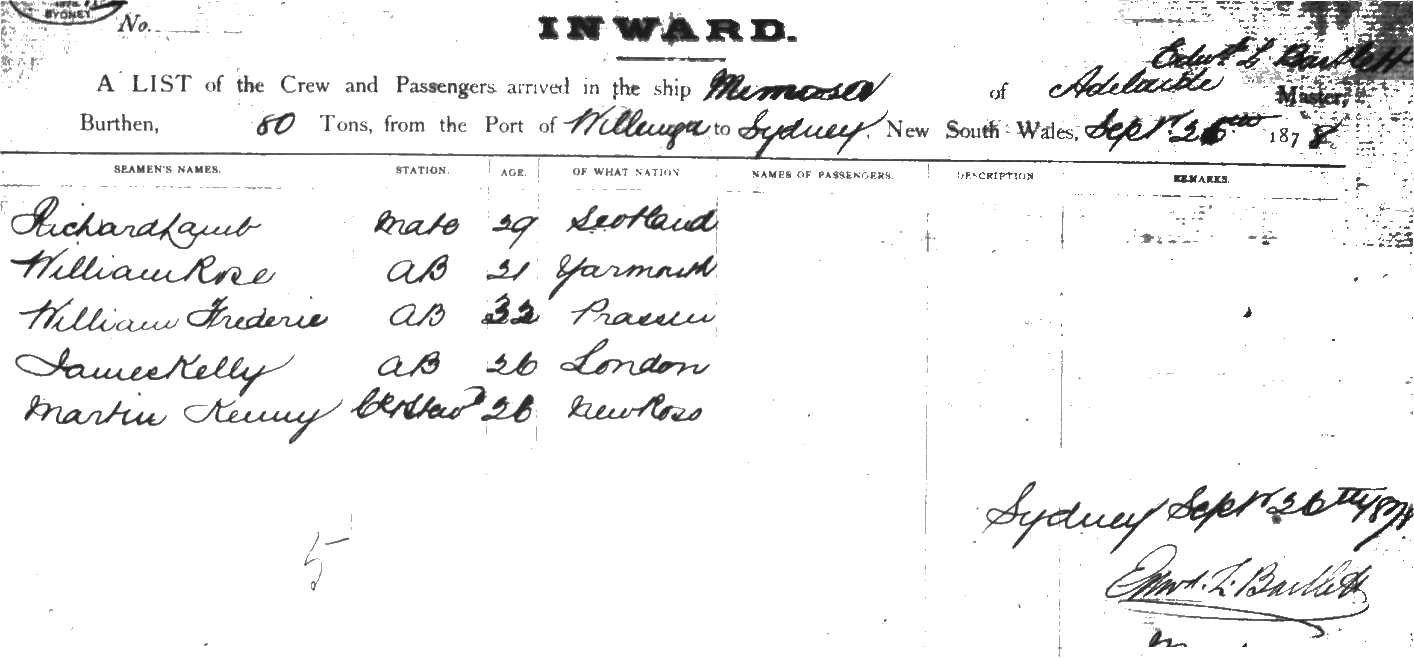 SYDNEY
No.
INWARD.
Edwd. L. Bartlett
A LIST of the Crew and Passengers arrived in the ship Mimosa of Adelaide Master,
Burthen, 80 Tons, from the Port of Willunga to Sydney, New South Wales, Sept. 26th 1878
SEAMEN'S NAMES. STATION. AGE. OF WHAT NATION NAMES OF PASSENGERS. DESCRIPTION REMARKS.
Richard Lamb Mate 29 Scotland
William Rose AB 21 Yarmouth
William Frederic AB 32 Prassen
James Kelly AB 26 London
Martin Kenny 26 New Ross
Sydney Sept 26th 1878
5
Edwd. L. Bartlett